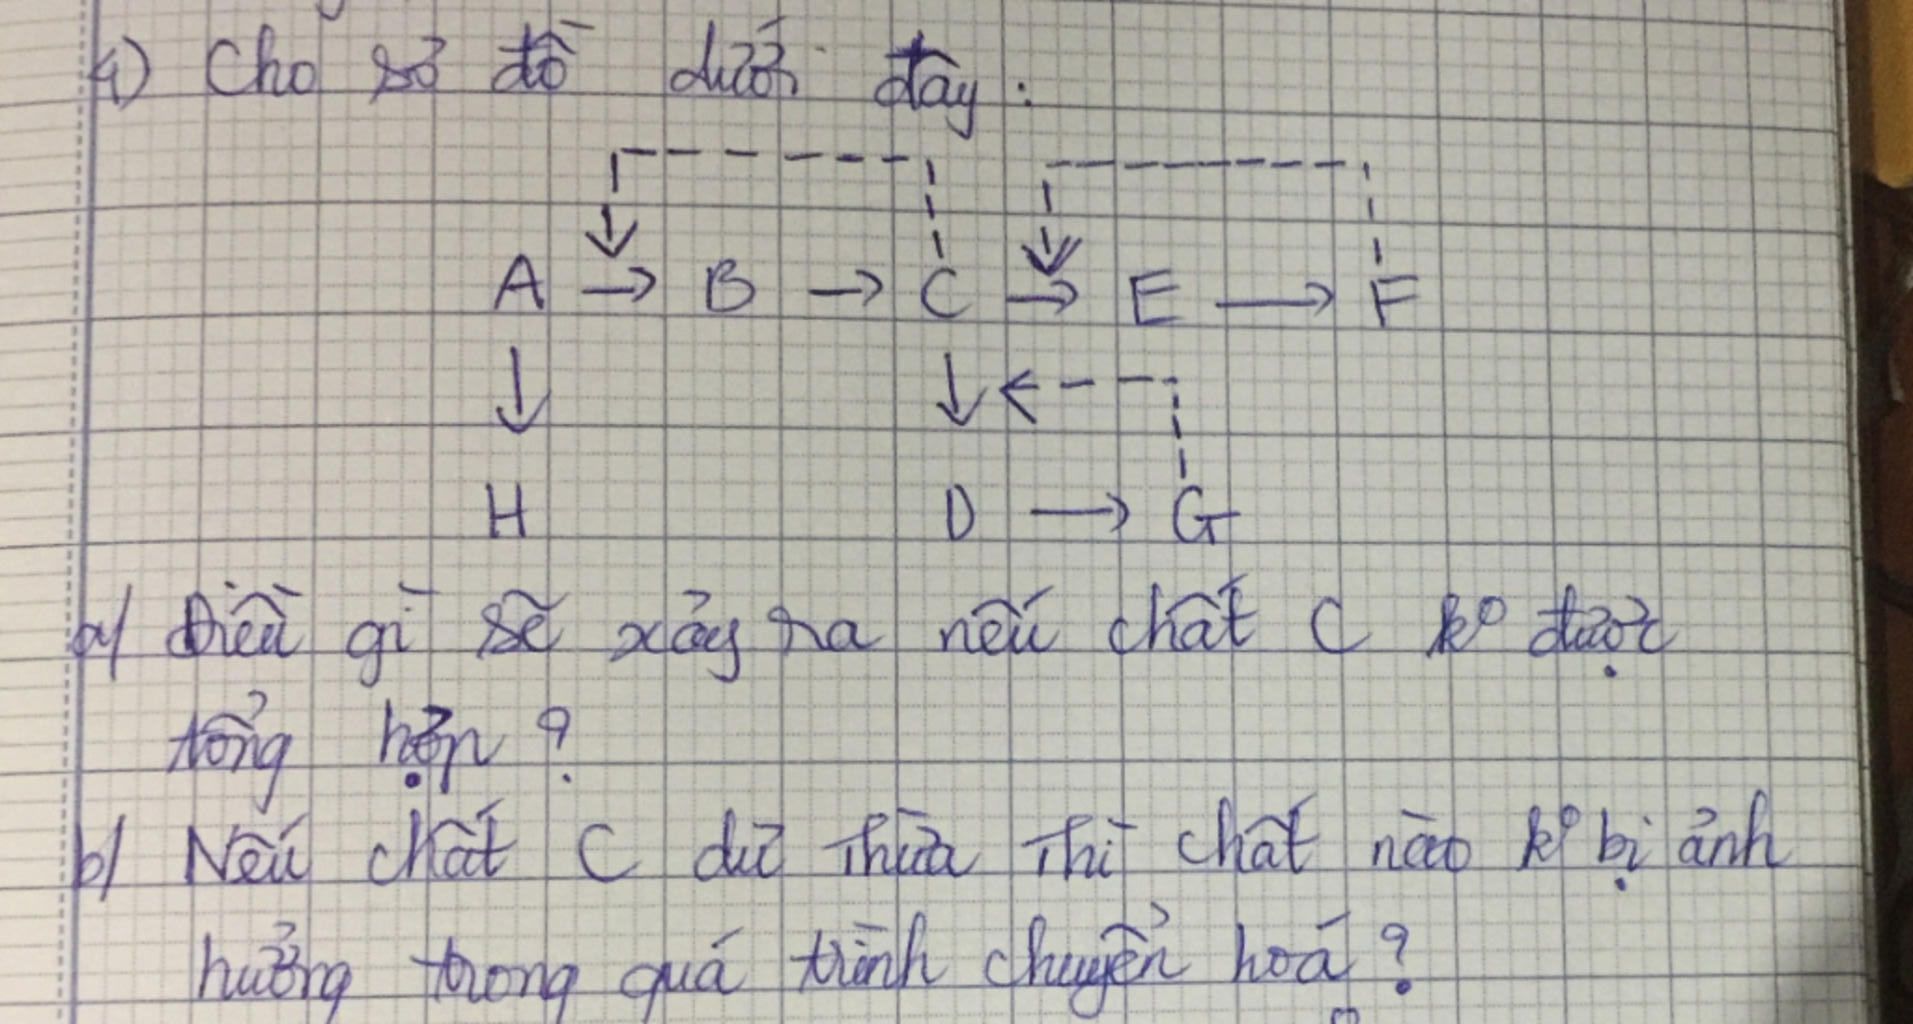 4) Cho sơ đồ dưới đây:
A → B → C → E → F
↓ ↓
H D → G
a/ Điều gì sẽ xảy ra nếu chất C kº được
tổng hợp?
b/ Nếu chất C dư thừa thì chất nào kº bị ảnh
hưởng trong quá trình chuyển hoá?